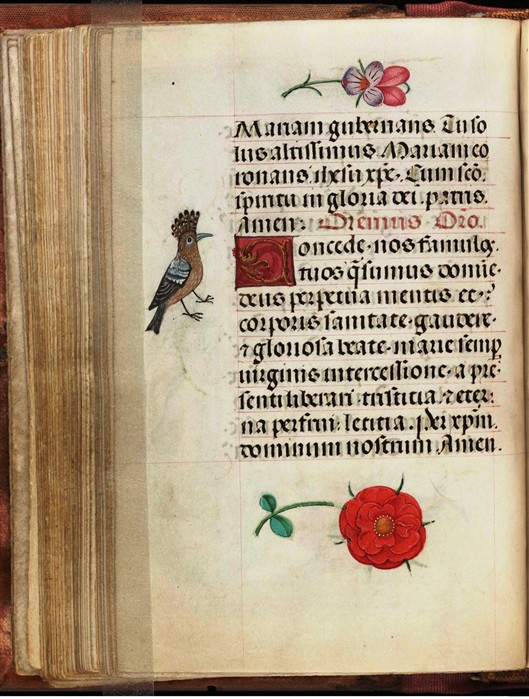 Mariam gubernans. Tu so
lus altissimus. Mariam co
ronans ihesu xp̄e. Cum sc̄o.
spiritu in gloria dei. patris.
Amen. Oremus Oro.
Concede. nos famulos
tuos q̄sumus domine.
deus perpetua mentis et.
corporis sanitate. gaudere.
⁊ gloriosa beate. marie semꝑ
uirginis intercessione. a pre
senti liberari. tristitia. ⁊ eter
na perfrui. letitia. Per xp̄m.
dominum nostrum Amen.